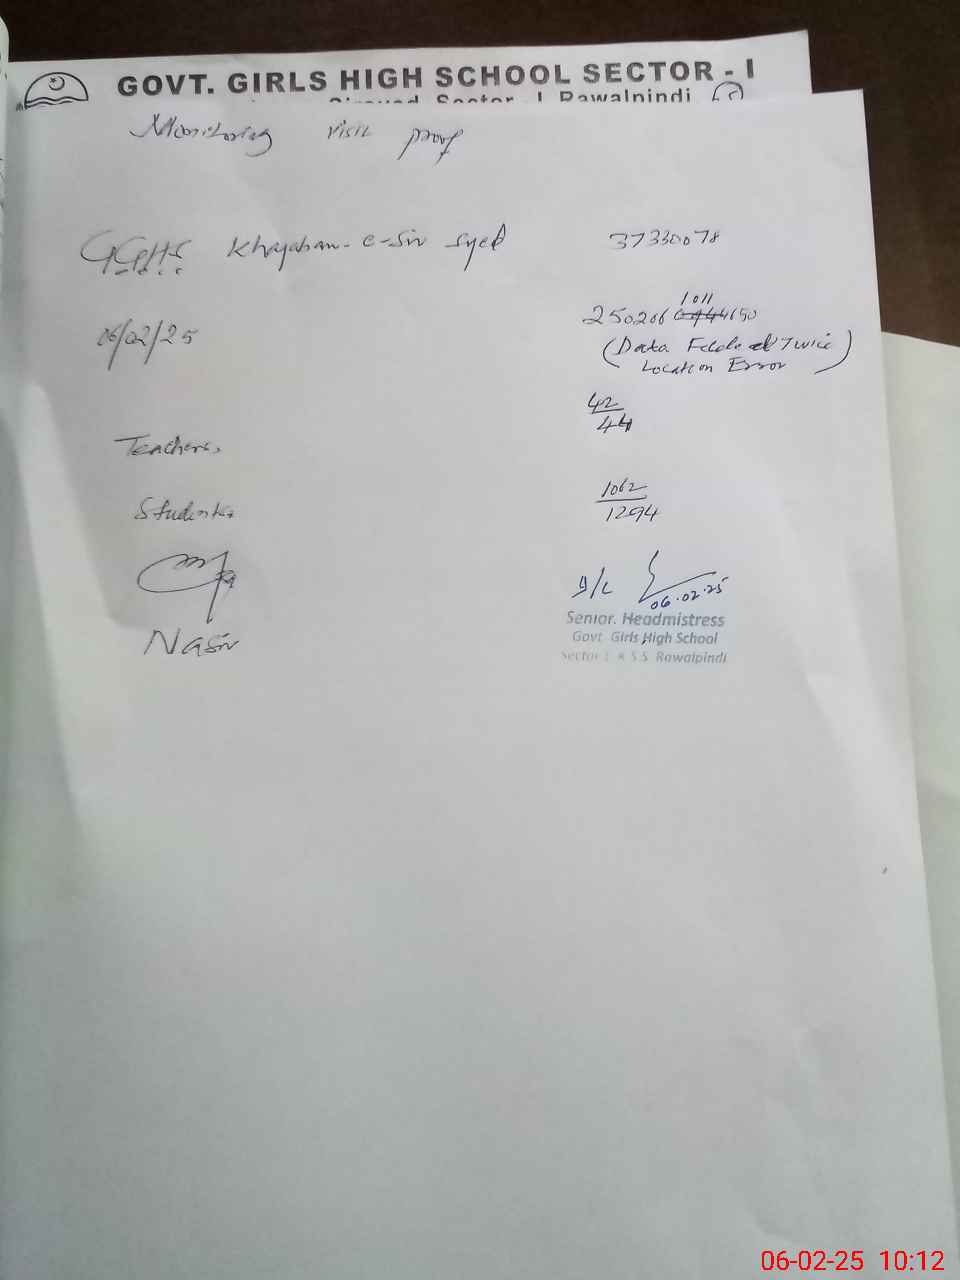 GOVT. GIRLS HIGH SCHOOL SECTOR - I
Sector - I Rawalpindi
Monitoring visit proof
GGHS Khayaban-e-Sir Syed 37330078
1011
06/02/25 250206 0944650
(Data Feeded Twice
Location Error)
42
44
Teachers
1062
Students
1294
06.02.25
Senior. Headmistress
Nasir
Govt Girls High School
Sector I K S.S Rawalpindi
06-02-25 10:12